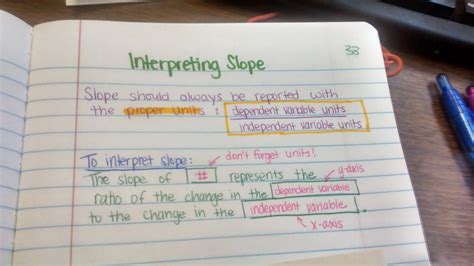 33
Interpreting Slope
Slope should always be reported with
the proper units : dependent variable units
independent variable units
To interpret slope: don't forget units!
The slope of # represents the y-axis
ratio of the change in the dependent variable
to the change in the independent variable.
x-axis